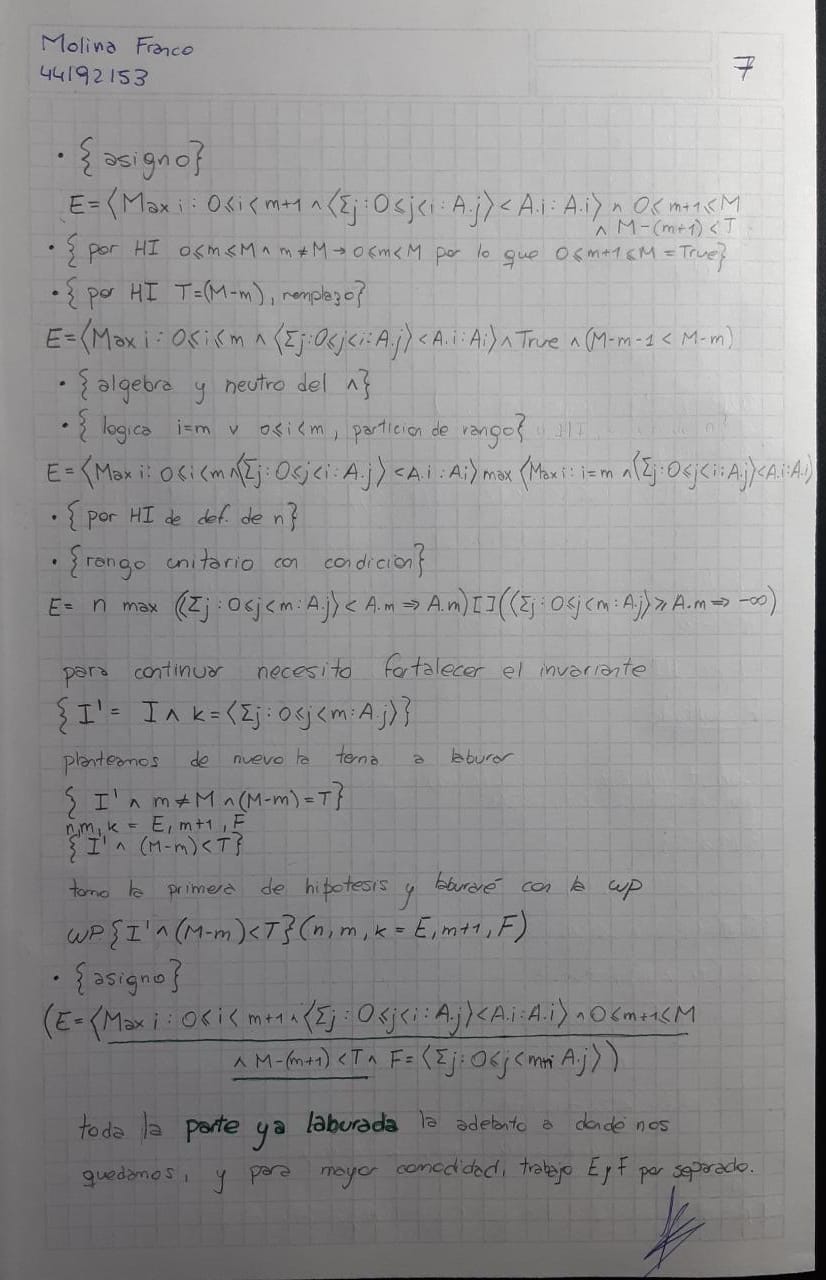 Molina Franco
44192153
7
• { asigno}
E=⟨Max i : 0≤i<m+1 ∧ ⟨Σj : 0≤j<i : A.j⟩ < A.i : A.i⟩ ∧ 0≤m+1≤M
∧ M-(m+1) < T
• { por HI 0≤m≤M ∧ m≠M → 0≤m<M por lo que 0≤m+1≤M = True}
• { por HI T=(M-m), remplazo}
E=⟨Max i : 0≤i≤m ∧ ⟨Σj:0≤j<i:A.j⟩ < A.i : Ai⟩ ∧ True ∧ (M-m-1 < M-m)
• {algebra y neutro del ∧}
• { logica i=m ∨ 0≤i<m, particion de rango}
E=⟨Max i: 0≤i<m ∧⟨Σj: 0≤j<i : A.j⟩ < A.i : Ai⟩ max ⟨Max i: i=m ∧⟨Σj:0≤j<i:A.j⟩<A.i:A.i⟩
• { por HI de def. de n}
• {rango unitario con condicion}
E= n max (⟨Σj : 0≤j<m:A.j⟩ < A.m ⇒ A.m) [] (⟨Σj : 0≤j<m : A.j⟩ ≥ A.m ⇒ -∞)
para continuar necesito fortalecer el invariante
{ I' = I ∧ k=⟨Σj : 0≤j<m:A.j⟩}
planteamos de nuevo la terna a laburar
{ I' ∧ m≠M ∧ (M-m)=T}
n,m,k = E, m+1, F
{ I' ∧ (M-m)<T}
tomo la primera de hipotesis y laburaré con la wp
WP.{I' ∧ (M-m)<T}(n, m, k = E, m+1, F)
• {asigno}
(E=⟨Max i : 0≤i< m+1 ∧⟨Σj : 0≤j<i:A.j⟩<A.i:A.i⟩ ∧ 0≤m+1≤M
∧ M-(m+1) <T ∧ F=⟨Σj : 0≤j< A.j⟩)
toda la parte ya laburada la adelanto a donde nos
quedamos, y para mayor comodidad, trabajo E y F por separado.